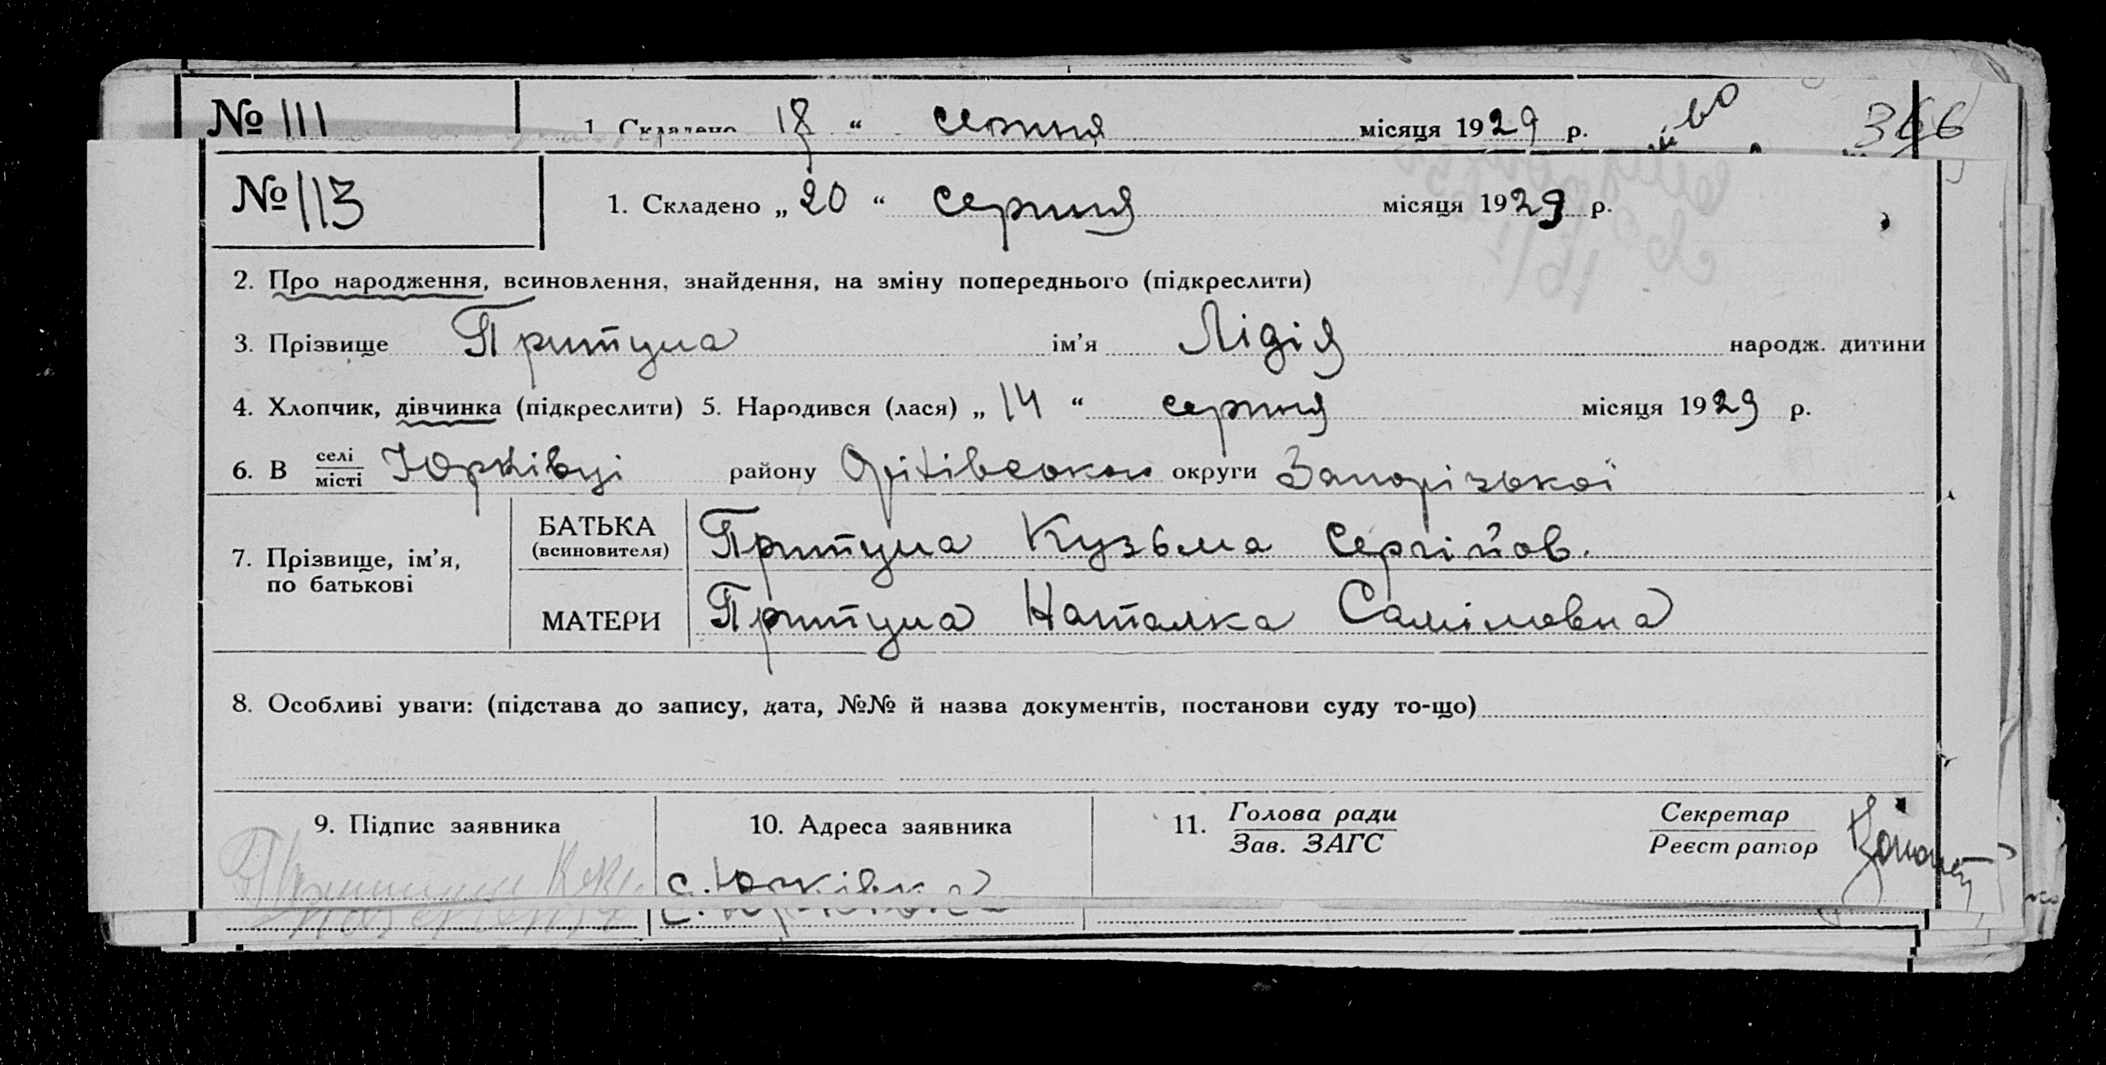 № 111 1. Складено 18 “ серпня місяця 1929 р. 366
№ 113 1. Складено „ 20 “ серпня місяця 1929 р.
2. Про народження, всиновлення, знайдення, на зміну попереднього (підкреслити)
3. Прізвище Притула ім’я Лідія народж. дитини
4. Хлопчик, дівчинка (підкреслити) 5. Народився (лася) „ 14 “ серпня місяця 1929 р.
6. В селі Юрківці району Оріхівського округи Запорізької
місті
7. Прізвище, ім’я,
по батькові
БАТЬКА Притула Кузьма Сергійов.
(всиновителя)
МАТЕРИ Притула Наталка
8. Особливі уваги: (підстава до запису, дата, №№ й назва документів, постанови суду то-що)
9. Підпис заявника 10. Адреса заявника 11. Голова ради Секретар
Зав. ЗАГС Реєстратор
с. Юрківка